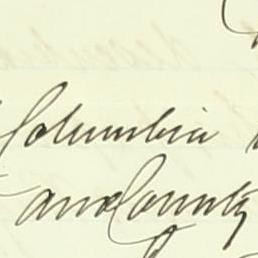 Columbia
and County